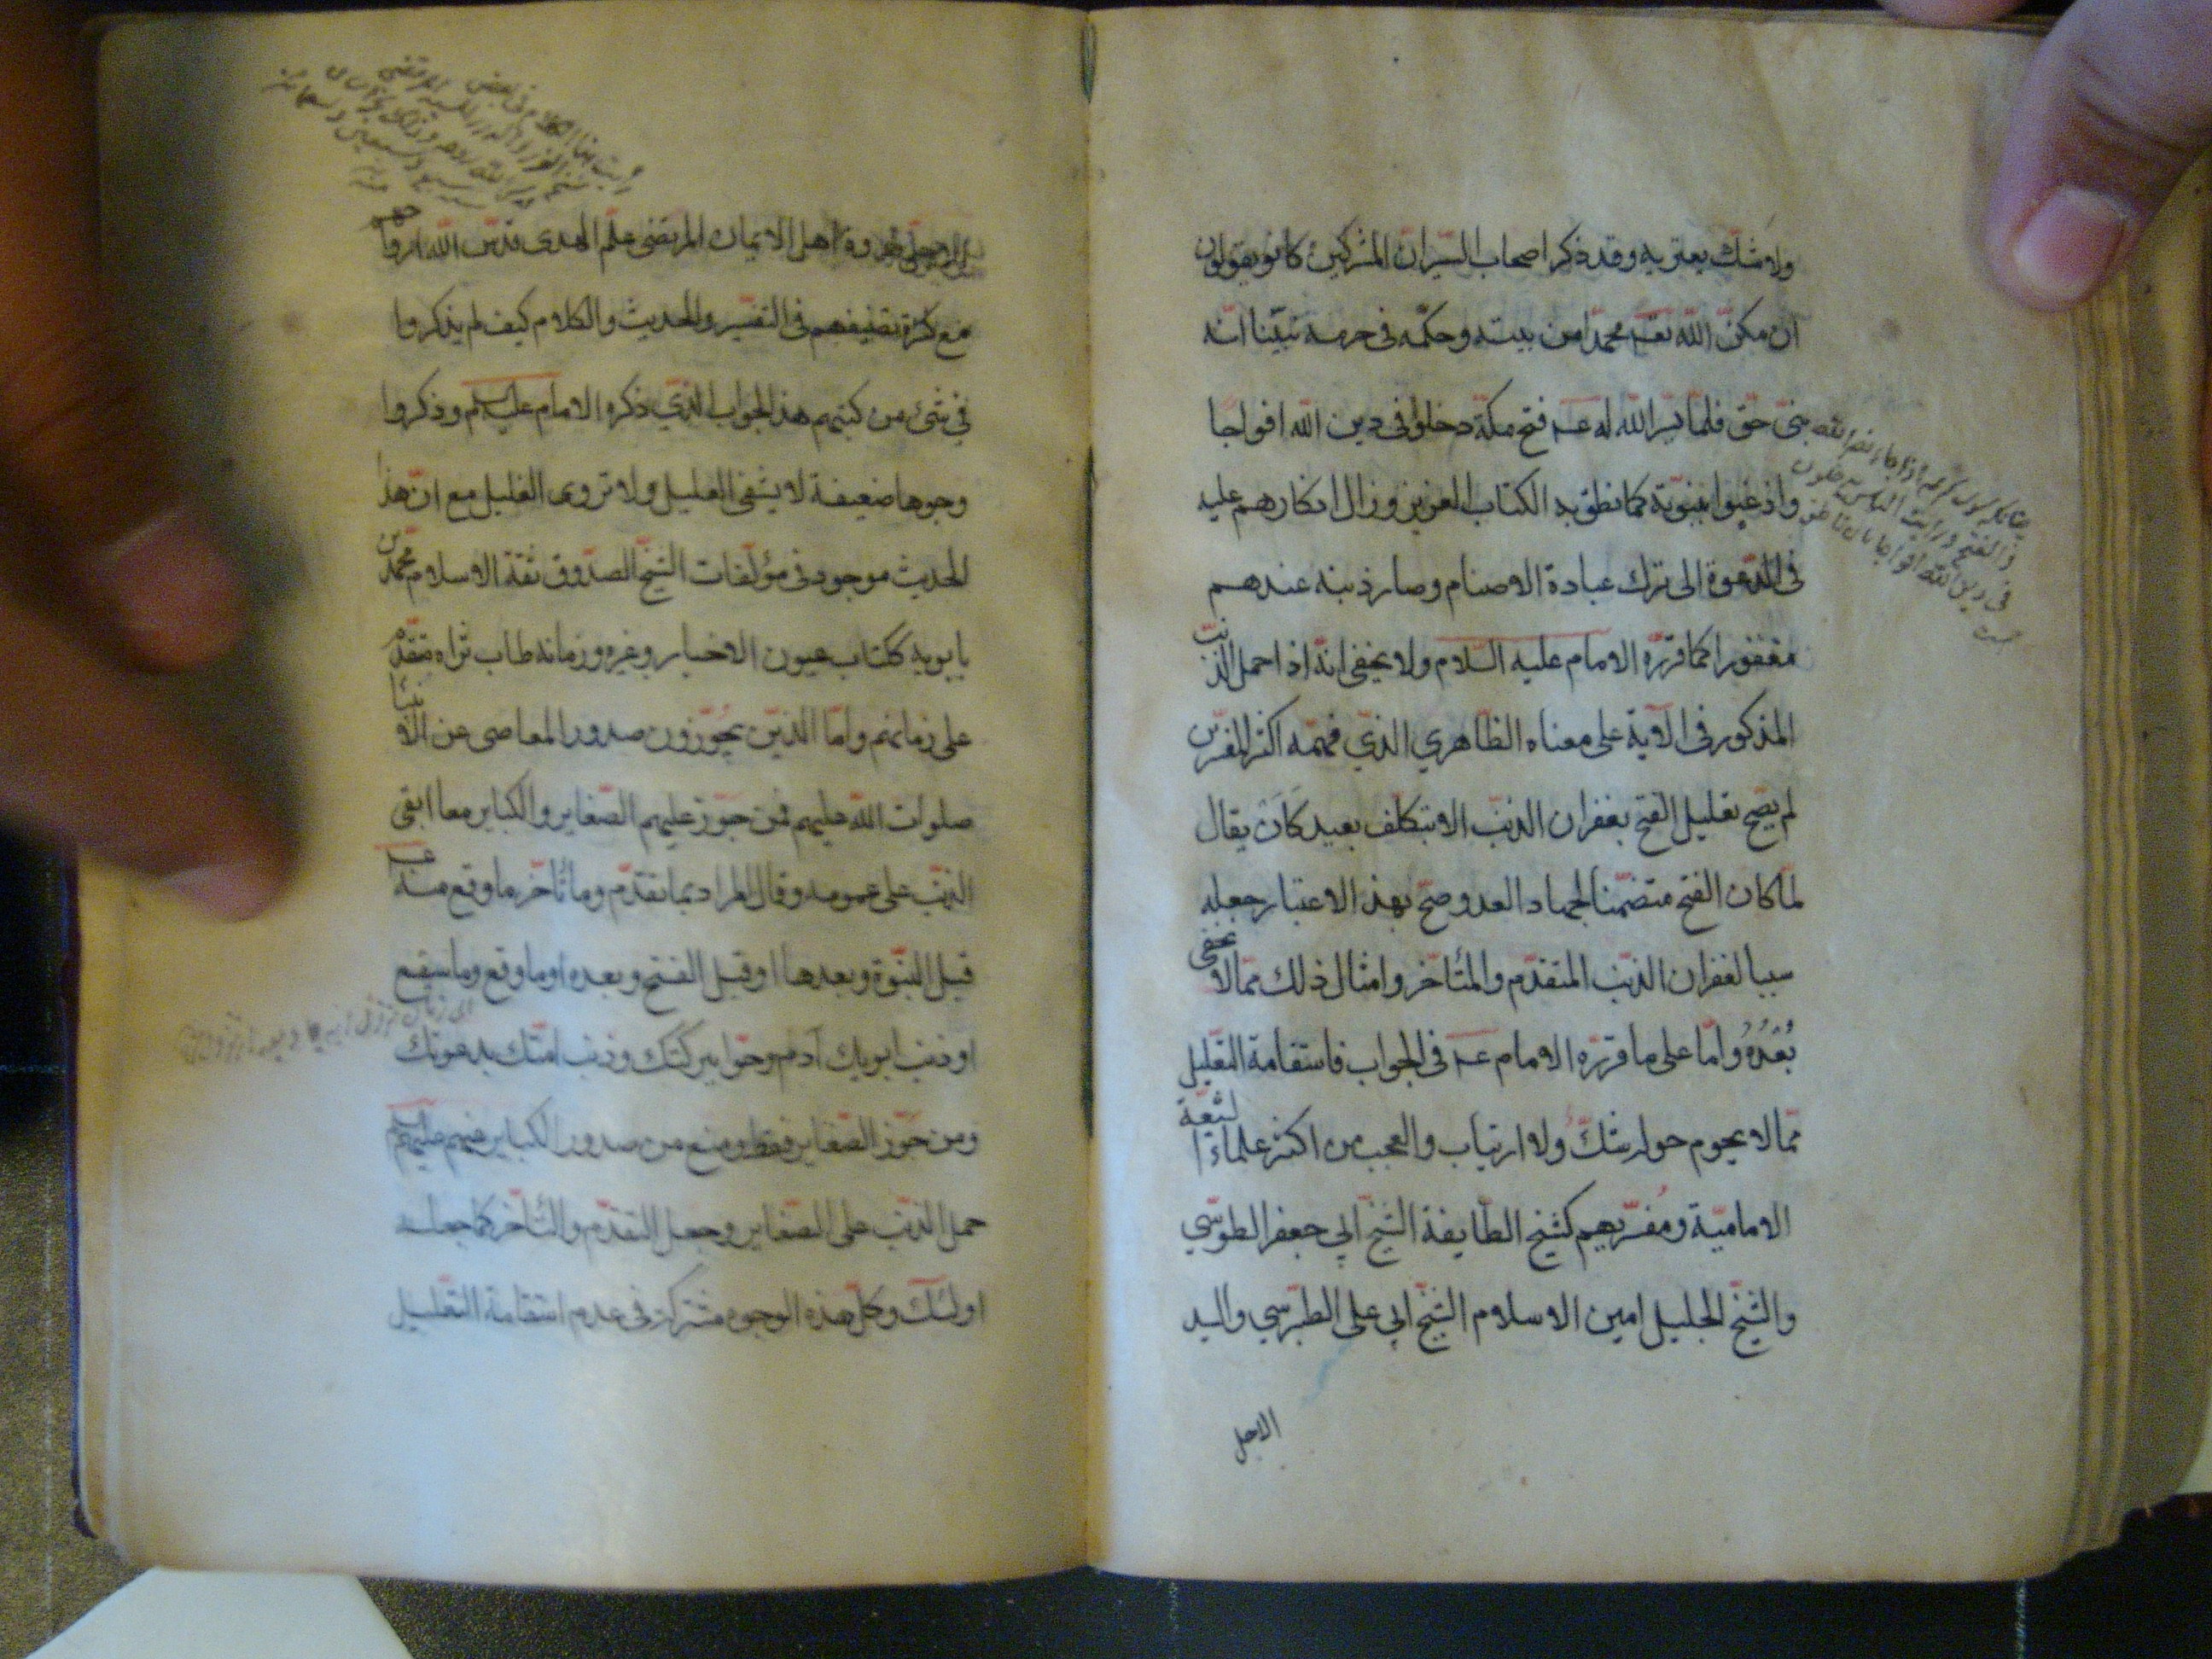 ولا شك يعتريه وقد ذكر اصحاب السير ان المشركين كانو يقولون
ان مكن الله تعـ محمدا من بيته وحكمه في حرمه تبينا انه
نبي حق فلما يسر الله له عـ فتح مكة دخلوا في دين الله افواجا
واذعنوا بنبوته كما نطق به الكتاب العزيز وزال انكارهم عليه
في الدعوة الى ترك عبادة الاصنام وصار ذنبه عندهم
مغفورا كما قرره الامام عليه السلام ولا يخفى انه اذا حمل الذنب
المذكور في الآية على معناه الظاهري الذي فهمه اكثر المفسرين
لم يصح تعليل الفتح بغفران الذنب الا بتكلف بعيد كان يقال
لما كان الفتح متضمنا لجهاد العدو صح بهذا الاعتبار جعله
سببا لغفران الذنب المتقدم والمتأخر وامثال ذلك مما لا يخفى
بُعْدُهُ واما على ما قرره الامام عـ في الجواب فاستقامة التعليل
مما لا يحوم حوله شك ولا ارتياب والعجب من اكثر علماء الشيعة
الامامية ومفسريهم كشيخ الطايفة الشيخ ابي جعفر الطوسي
والشيخ الجليل امين الاسلام الشيخ ابي علي الطبرسي والسيد
الاجل
اذا جاء نصر الله
والفتح ورايت الناس يدخلون
في دين الله افواجا
الاجل قدوة اهل الايمان المرتضى علم الهدى قدس الله ارواحهم
مع كثرة تصنيفهم في التفسير والحديث والكلام كيف لم يذكروا
في شئ من كتبهم هذا الجواب الذي ذكره الامام عليه السلم وذكروا
وجوها ضعيفة لا يشفى العليل ولا تروى الغليل مع ان هذا
الحديث موجود في مؤلفات الشيخ الصدوق ثقة الاسلام محمد بن
بابويه ككتاب عيون الاخبار وغيره وزمانه طاب ثراه متقدم
على زمانهم واما الذين يجوزون صدور المعاصي عن الانبيا
صلوات الله عليهم فمن جوز عليهم الصغاير والكباير معا ابقى
الذنب على عمومه وقال المراد بما تقدم وما تأخر ما وقع منه عـ
قبل النبوة وبعدها او قبل الفتح وبعده او ما وقع وما سيقع
او ذنب ابويك آدم وحوا ببركتك وذنب امتك بدعوتك
ومن جوز الصغاير فقط ومنع من صدور الكباير عنهم عليهم السلم
حمل الذنب على الصغاير وجعل التقدم والتأخر كما جعله
اولئك وكل هذه الوجوه مشتركة في عدم استقامة التعليل